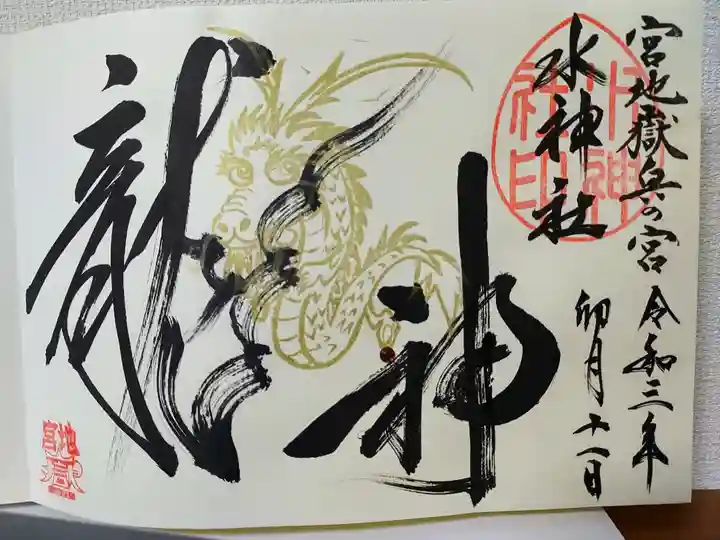 宮地嶽奥の宮
令和三年
卯月十一日
水神社
水神社印
龍神
宮地嶽